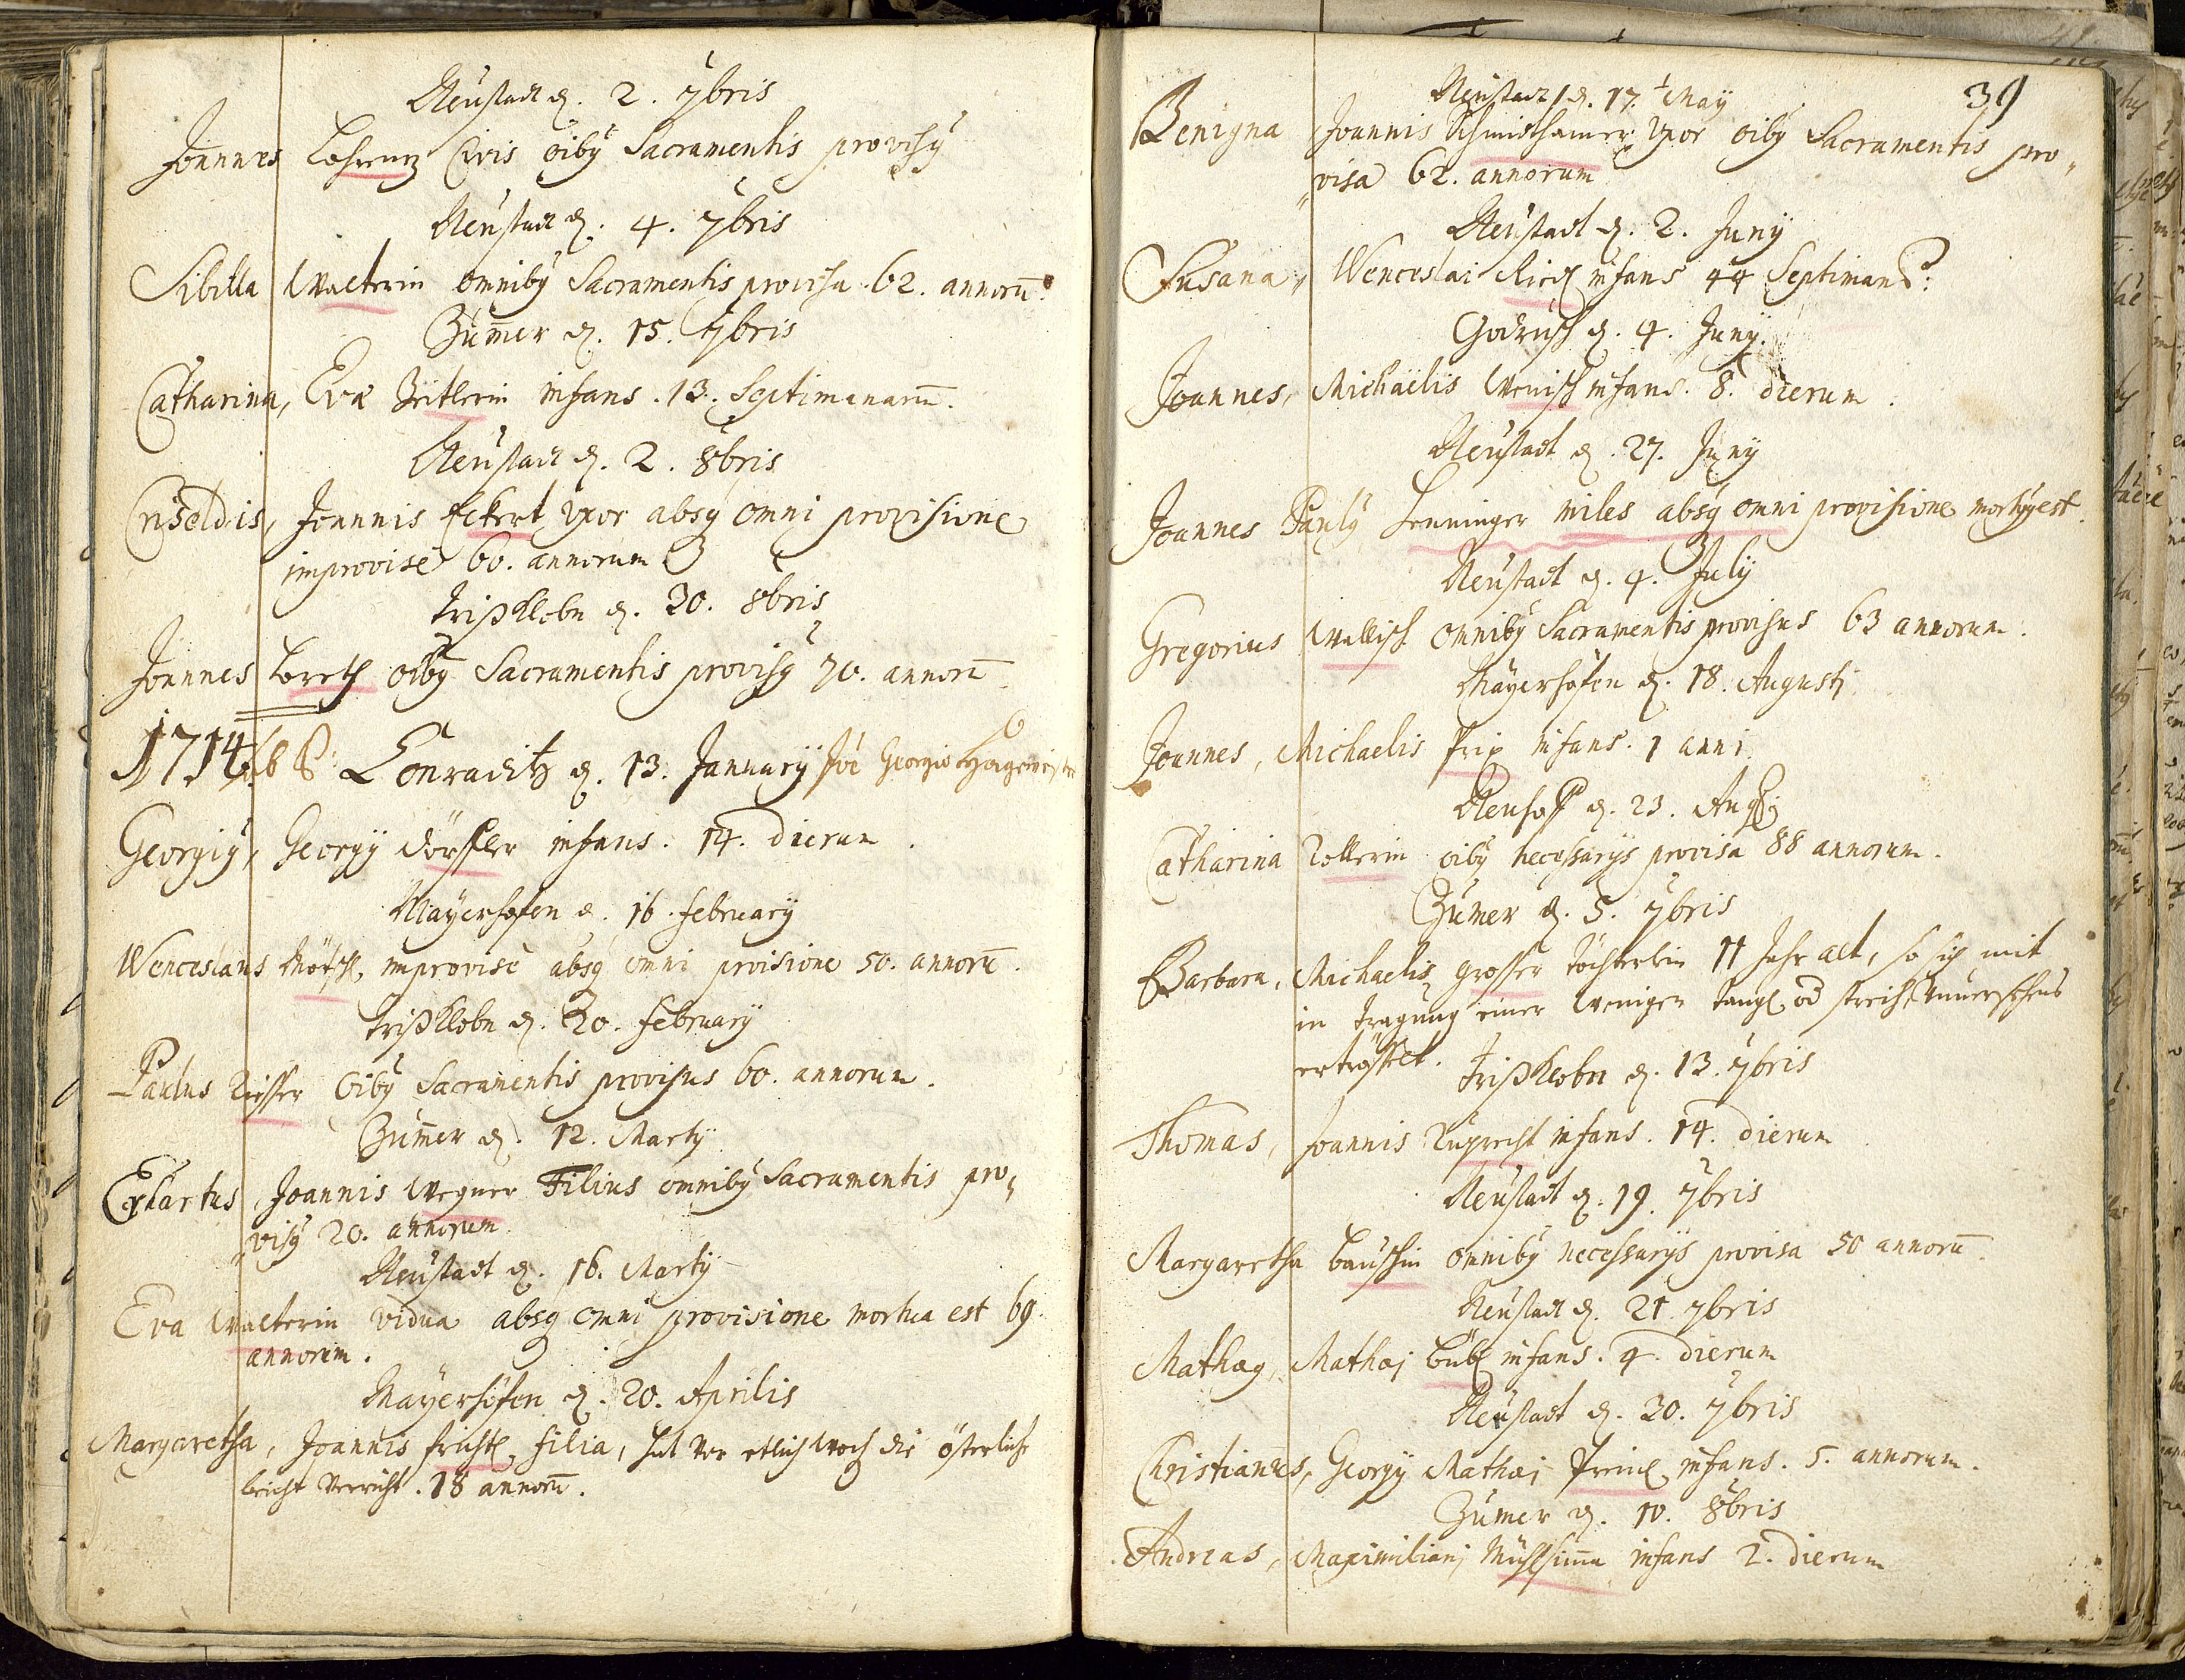 Neustadt d. 2. 7bris
Joannes Lohrentz Civis oibg Sacramentis provisg
Neustadt d. 4. 7bris
Sibilla Walterin omnibg Sacramentis provisa 62. annorū.
Zum̄er d. 15. 7bris
Catharina, Evæ Zeitlerin infans. 13. Septimanarū.
Neustadt d. 2. 8bris
Joannis Eckert uxor absq omni provisione
improvisè 60. annorum
Trißklobn d. 20. 8bris
Joannes Loreth oibg Sacramentis provisg 70. annorū
1714. Conraditz d. 13. January Joē Georgio
Georgig, Georgÿ Dörfler infans. 14. dierum.
Mayerhöfen d. 16. february
Wenceslaus improvisè absq omni provisione 50. annorū.
Trißklobn d. 20. february
Paulus Riesser oibg Sacramentis provisus 60. annorum.
Zum̄er d. 12. Martÿ
Ekhartus, Joannis Wegner Filius omnibg Sacramentis pro,,
,,visg 20. annorum
Neustadt d. 16. Martÿ
Eva Walterin vidua absq omni provisione mortua est 69.
annorum.
Mayerhöfen d. 20. Aprilis
Margaretha, Joannis filia, hat vor etlich Woch die österliche
beicht verricht. 18 annorū.
39
Neustadt d. 17. May
Benigna Joannis Schmidthamer uxor oibg Sacramentis pro,,
,,visa 62. annorum
Neustadt d. 2. Juny
Susana, Wenceslai infans 44 Septiman:
Godrisch d. 4. Juny.
Joannes, Michaëlis Wenisch infans. 8. dierum.
Neustadt d. 27. Juny
Joannes Paulg Lenninger miles absq omni provisione mortug est.
Neustadt d. 4. July
Gregorius Wallisch omnibg Sacramentis provisus 63 annorum.
Mayerhöfen d. 18. Augusti
Joannes, Michaelis Prix infans. 1 anni
Neuhoff d. 23. Aug
Catharina Zollerin oibg necessarys provisa 88 annorum.
Zumer d. 5. 7bris
Barbara, Michaelis grosser töchterlein 11 Jahr alt, so sich mit
in tragung einer wenigen od streich
Trißklobn d. 13. 7bris
Thomas, Joannis Ruprecht infans. 14. dierum
Neustadt d. 19. 7bris
Margaretha omnibg necessarys provisa 50 annorū.
Neustadt d. 21. 7bris
Mathæg, Mathæi infans. 4. dierum
Neustadt d. 30. 7bris
Christianus, Georgÿ Mathæi infans. 5. annorum.
Zumer d. 10. 8bris
Andreas, Maximiliani infans 2. dierum